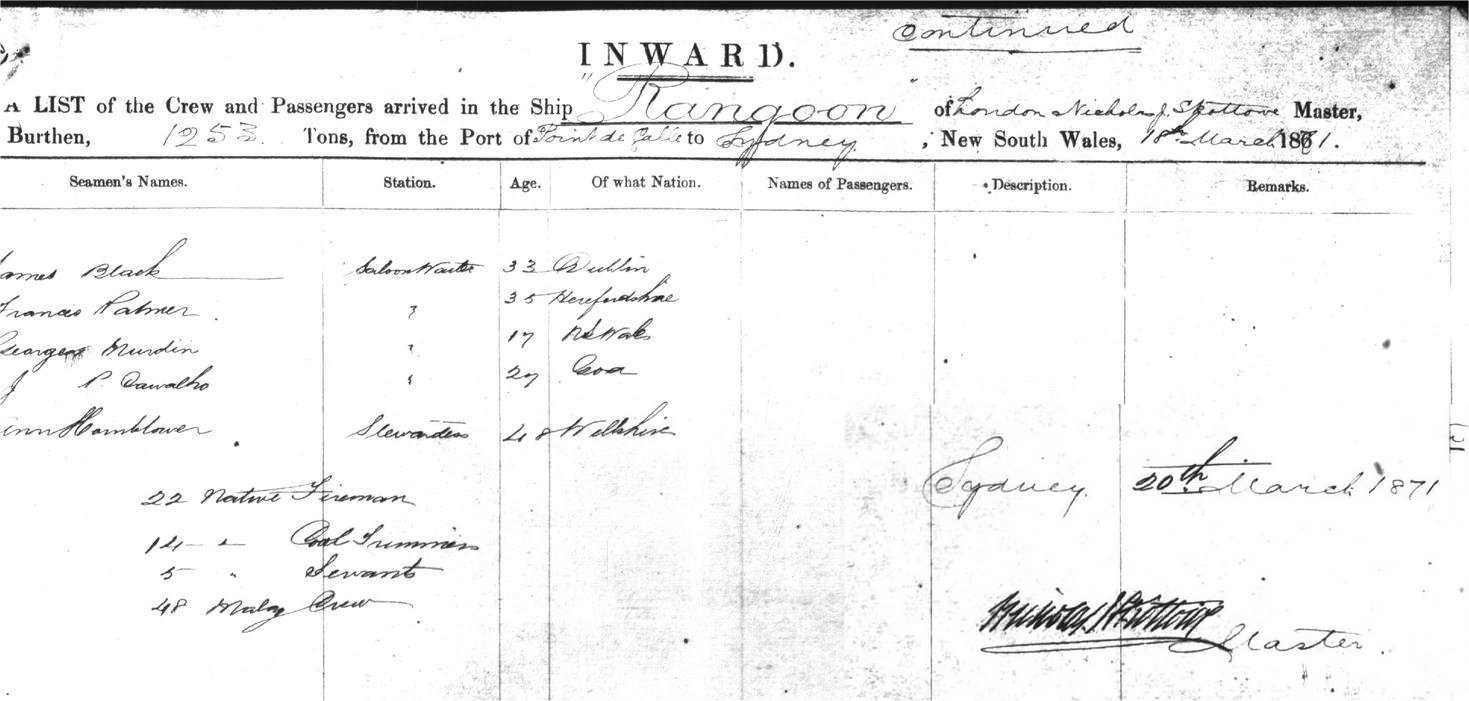 continued
INWARD.
A LIST of the Crew and Passengers arrived in the Ship "Rangoon" of London Nicholas J. Skottowe Master,
Burthen, 1253 Tons, from the Port of Point de Galle to Sydney, New South Wales, 18th March 1871.
Seamen's Names. Station. Age. Of what Nation. Names of Passengers. Description. Remarks.
James Black Saloon Waiter 33 Dublin
Francis Palmer " 35 Herefordshire
George Murdin " 17 N S Wales
J P. Carvalho " 27 Goa
Ann Hornblower Stewardess 48 Wiltshire
Sydney 20th March 1871
22 Native Fireman
14 " Coal Trimmers
5 " Servants
48 Malay Crew
Nicholas J Skottowe
Master